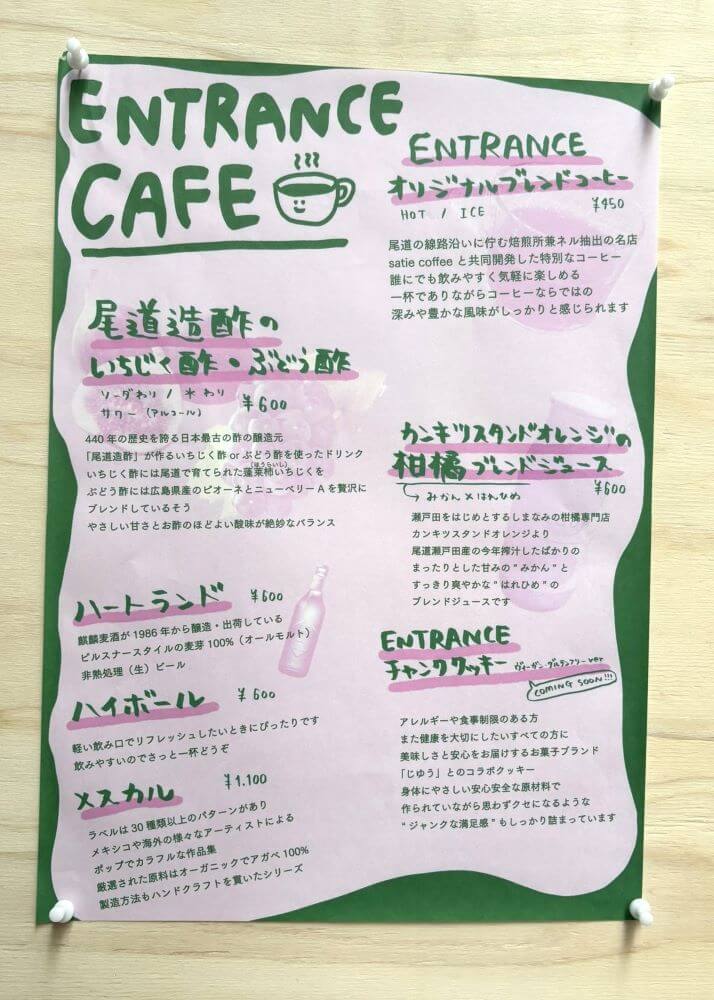 ENTRANCE
CAFE
尾道造酢の
いちじく酢・ぶどう酢
ソーダわり / 水わり
サワー (アルコール) ¥600
440年の歴史を誇る日本最古の酢の醸造元
「尾道造酢」が作るいちじく酢 or ぶどう酢を使ったドリンク
いちじく酢には尾道で育てられた蓬莱柿いちじくを
(ほうらいし)
ぶどう酢には広島県産のピオーネとニューベリーAを贅沢に
ブレンドしているそう
やさしい甘さとお酢のほどよい酸味が絶妙なバランス
ハートランド ¥600
麒麟麦酒が1986年から醸造・出荷している
ピルスナースタイルの麦芽100%（オールモルト）
非熱処理（生）ビール
ハイボール ¥600
軽い飲み口でリフレッシュしたいときにぴったりです
飲みやすいのでさっと一杯どうぞ
メスカル ¥1.100
ラベルは30種類以上のパターンがあり
メキシコや海外の様々なアーティストによる
ポップでカラフルな作品集
厳選された原料はオーガニックでアガベ100%
製造方法もハンドクラフトを貫いたシリーズ
ENTRANCE
オリジナルブレンドコーヒー
HOT / ICE ¥450
尾道の線路沿いに佇む焙煎所兼ネル抽出の名店
satie coffee と共同開発した特別なコーヒー
誰にでも飲みやすく気軽に楽しめる
一杯でありながらコーヒーならではの
深みや豊かな風味がしっかりと感じられます
カンキツスタンドオレンジの
柑橘ブレンドジュース
みかん×はれひめ ¥600
瀬戸田をはじめとするしまなみの柑橘専門店
カンキツスタンドオレンジより
尾道瀬戸田産の今年搾汁したばかりの
まったりとした甘みの"みかん"と
すっきり爽やかな"はれひめ"の
ブレンドジュースです
ENTRANCE
チャンククッキー ヴィーガン・グルテンフリーver
COMING SOON!!!
アレルギーや食事制限のある方
また健康を大切にしたいすべての方に
美味しさと安心をお届けするお菓子ブランド
「じゆう」とのコラボクッキー
身体にやさしい安心安全な原材料で
作られていながら思わずクセになるような
"ジャンクな満足感"もしっかり詰まっています